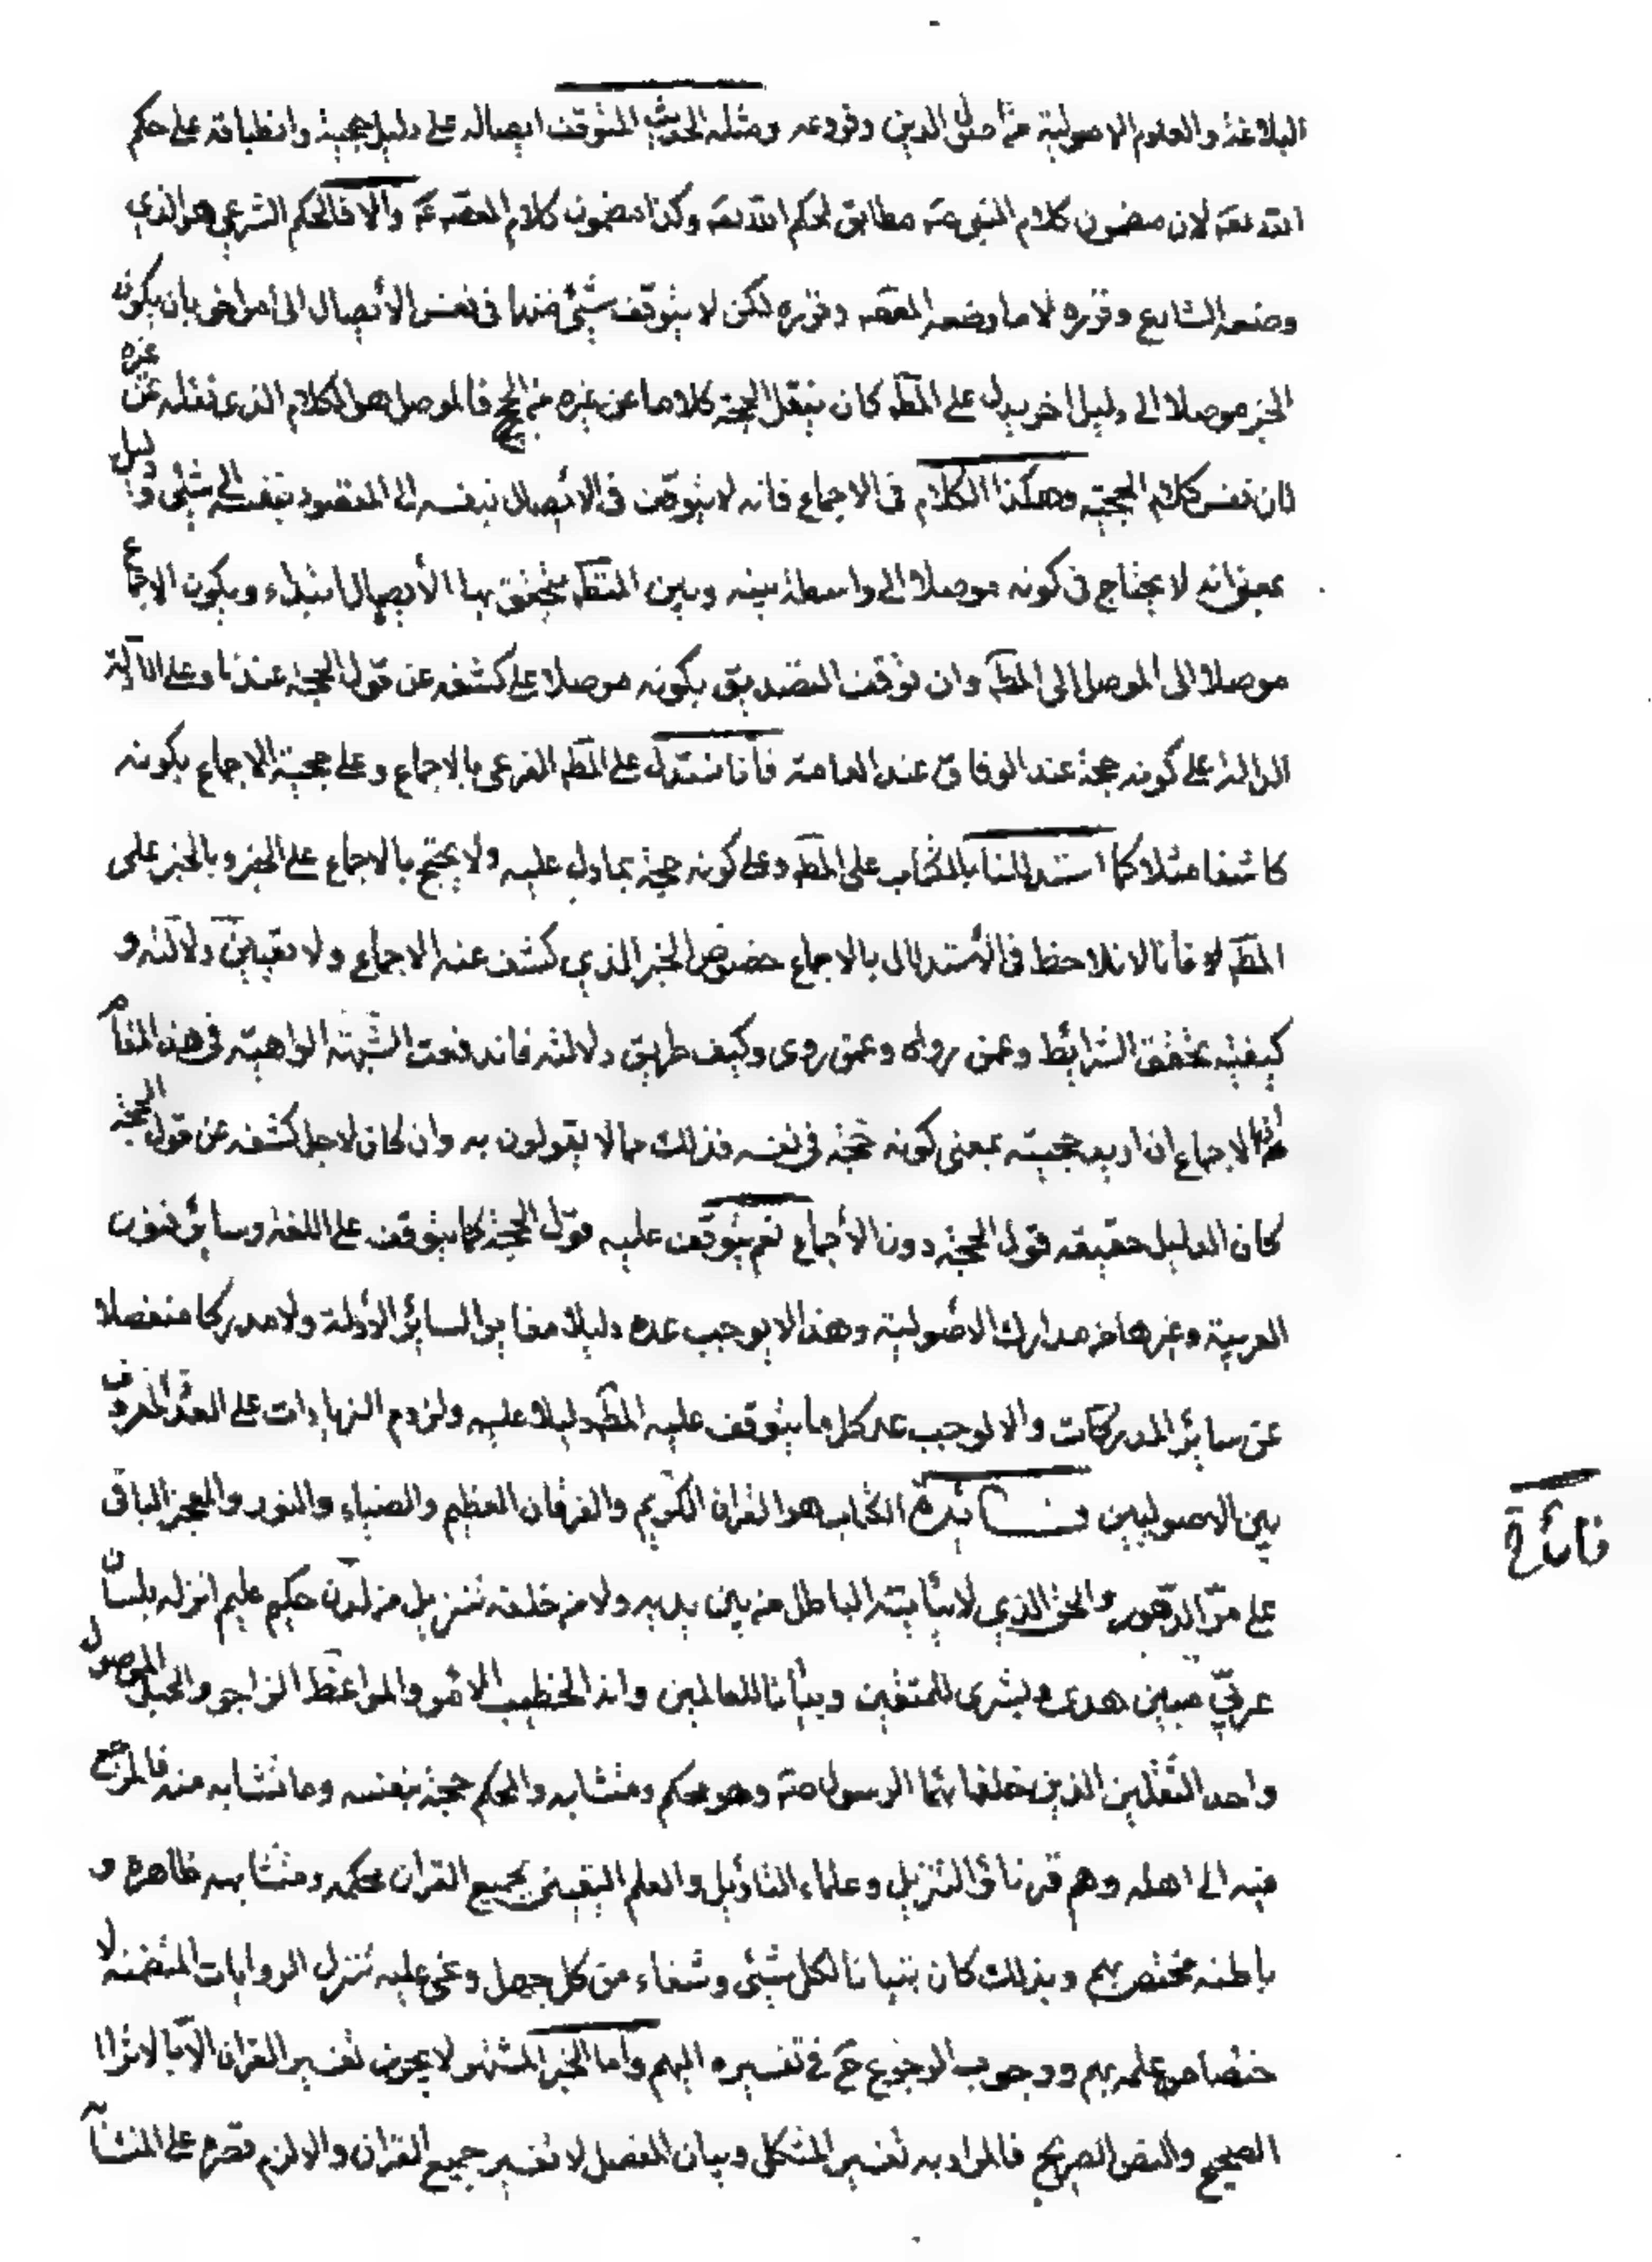 البلاغة والعلوم الاصولية من اصلى الدين وفروعه ومثله الحديث المتوقف ايصاله على دليل حجية وانطباقه على حكم
الله تعه لان مضمون كلام النبى صه مطابق لحكم الله تعه وكذا مضمون كلام المعصه عه والا فالحكم الشرعي هو الذي
وضعه الشارع وقرره لا ما وضعه المعصه وقرره لكن لا يتوقف شئ منها فى نفس الأيصال الى أمر اخر بان يكون
الخبر موصلا الى دليل اخر يدل على المطه كان ينقل الحجة كلاما عن غيره من الحجج فالموصل هو الكلام الذى نقله عن غيره
فان نفس كلام الحجة وهكذا الكلام فى الاجماع فانه لا يتوقف فى الأيصال بنفسه الى المقصود بنفسه الى شئ ودليل
بمعنى انه لا يحتاج فى كونه موصلا الى واسطة بينه وبين المطه يتحقق بها الأيصال ابتداء ويكون الاجماع
موصلا الى الموصل الى المطه وان توقف التصديق بكونه موصلا على كشفه عن قول الحجة عندنا وعلى الادلة
الدالة على كونه حجة عند الوفاق عند العامة فأنا نستدل على المطه الفرعى بالاجماع وعلى حجية الاجماع بكونه
كاشفا مثلا كما استدللنا بالكتاب على المطه وعلى كونه حجة بما دل عليه ولا يحتج بالاجماع على الخبر وبالخبر على
المطه فانا لا نلاحظ فى الأستدلال بالاجماع خصوص الخبر الذي كشف عنه الاجماع ولا نعين دلالته و
كيفية تحقق الشرائط وعمن رواه وعمن روى وكيف طريق دلالته فاندفعت الشبهة الواهية فى هذا المقام
الاجماع ان اريد بحجيته بمعنى كونه حجة فى نفسه فذلك مما لا يقولون به وان كان لاجل كشفه عن قول الحجة
كان الدليل حقيقه قول الحجة دون الأجماع نعم يتوقف عليه قول الحجة كما يتوقف على اللغة وسائر فنون
العربية وغيرها من مدارك الأصولية وهذا لا يوجب عده دليلا مغايرا لسائر الأدلة ولا مدركا منفصلا
عن سائر المدركات والا لوجب عد كل ما يتوقف عليه المطه دليلا عليه ولزوم الزيادات على العدّ المعروف
بين الاصوليين فائدة الكتاب هو القران الكريم والفرقان العظيم والضياء والنور والمعجز الباقى
على مرّ الدهور والحق الذي لا يأتيه الباطل من بين يديه ولا من خلفه تنزيل من لدن حكيم عليم انزله بلسان
عربيّ مبين هدى وبشرى للمتقين وبيانا للعالمين وانه الخطيب الامر والمواعظ الزاجر والحبل الموصول
واحد الثقلين الذين خلفهما الرسول صه وهو محكم ومتشابه والمحكم حجة بنفسه وما تشابه منه فالمرجع
فيه الى اهله وهم قرناؤ التنزيل وعلماء التاويل والعلم اليقينى بجميع القران محكمه ومتشابهه ظاهره و
باطنه مختص بهم وبذلك كان تبيانا لكل شئ وشفاء من كل جهل وعى عليه تنزل الروايات المتضمنة لا
ختصاص علمه بهم ووجوب الرجوع ح في تفسيره اليهم وأما الخبر المشهور لا يجوز تفسير القران الا بالاثر ا
الصحيح والنص الصريح فالمراد به تفسير المشكل وبيان المفصل لا تفسير جميع القران والا لزم قصره على المتشابه
فائدة